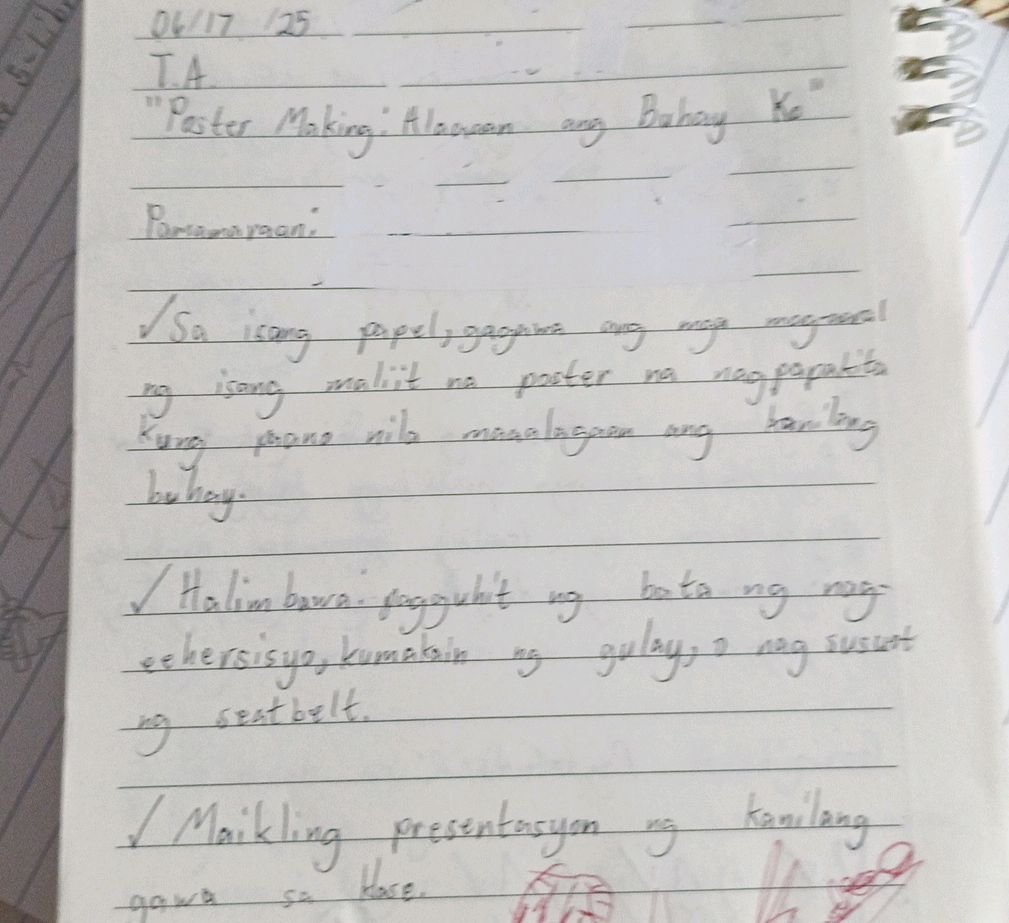 06/17/25
T.A.
"Poster Making: Alagaan ang Buhay Ko"
Pamamaraan:
✓ Sa isang papel, gagawa ang mga mag-aaral
ng isang maliit na poster na nagpapakita
Kung paano nila maaalagaan ang kanilang
buhay.
✓ Halimbawa: pagguhit ng bata ng nag-
eehersisyo, kumakain ng gulay, o nag susuot
ng seatbelt.
✓ Maikling presentasyon ng kanilang
gawa sa klase.